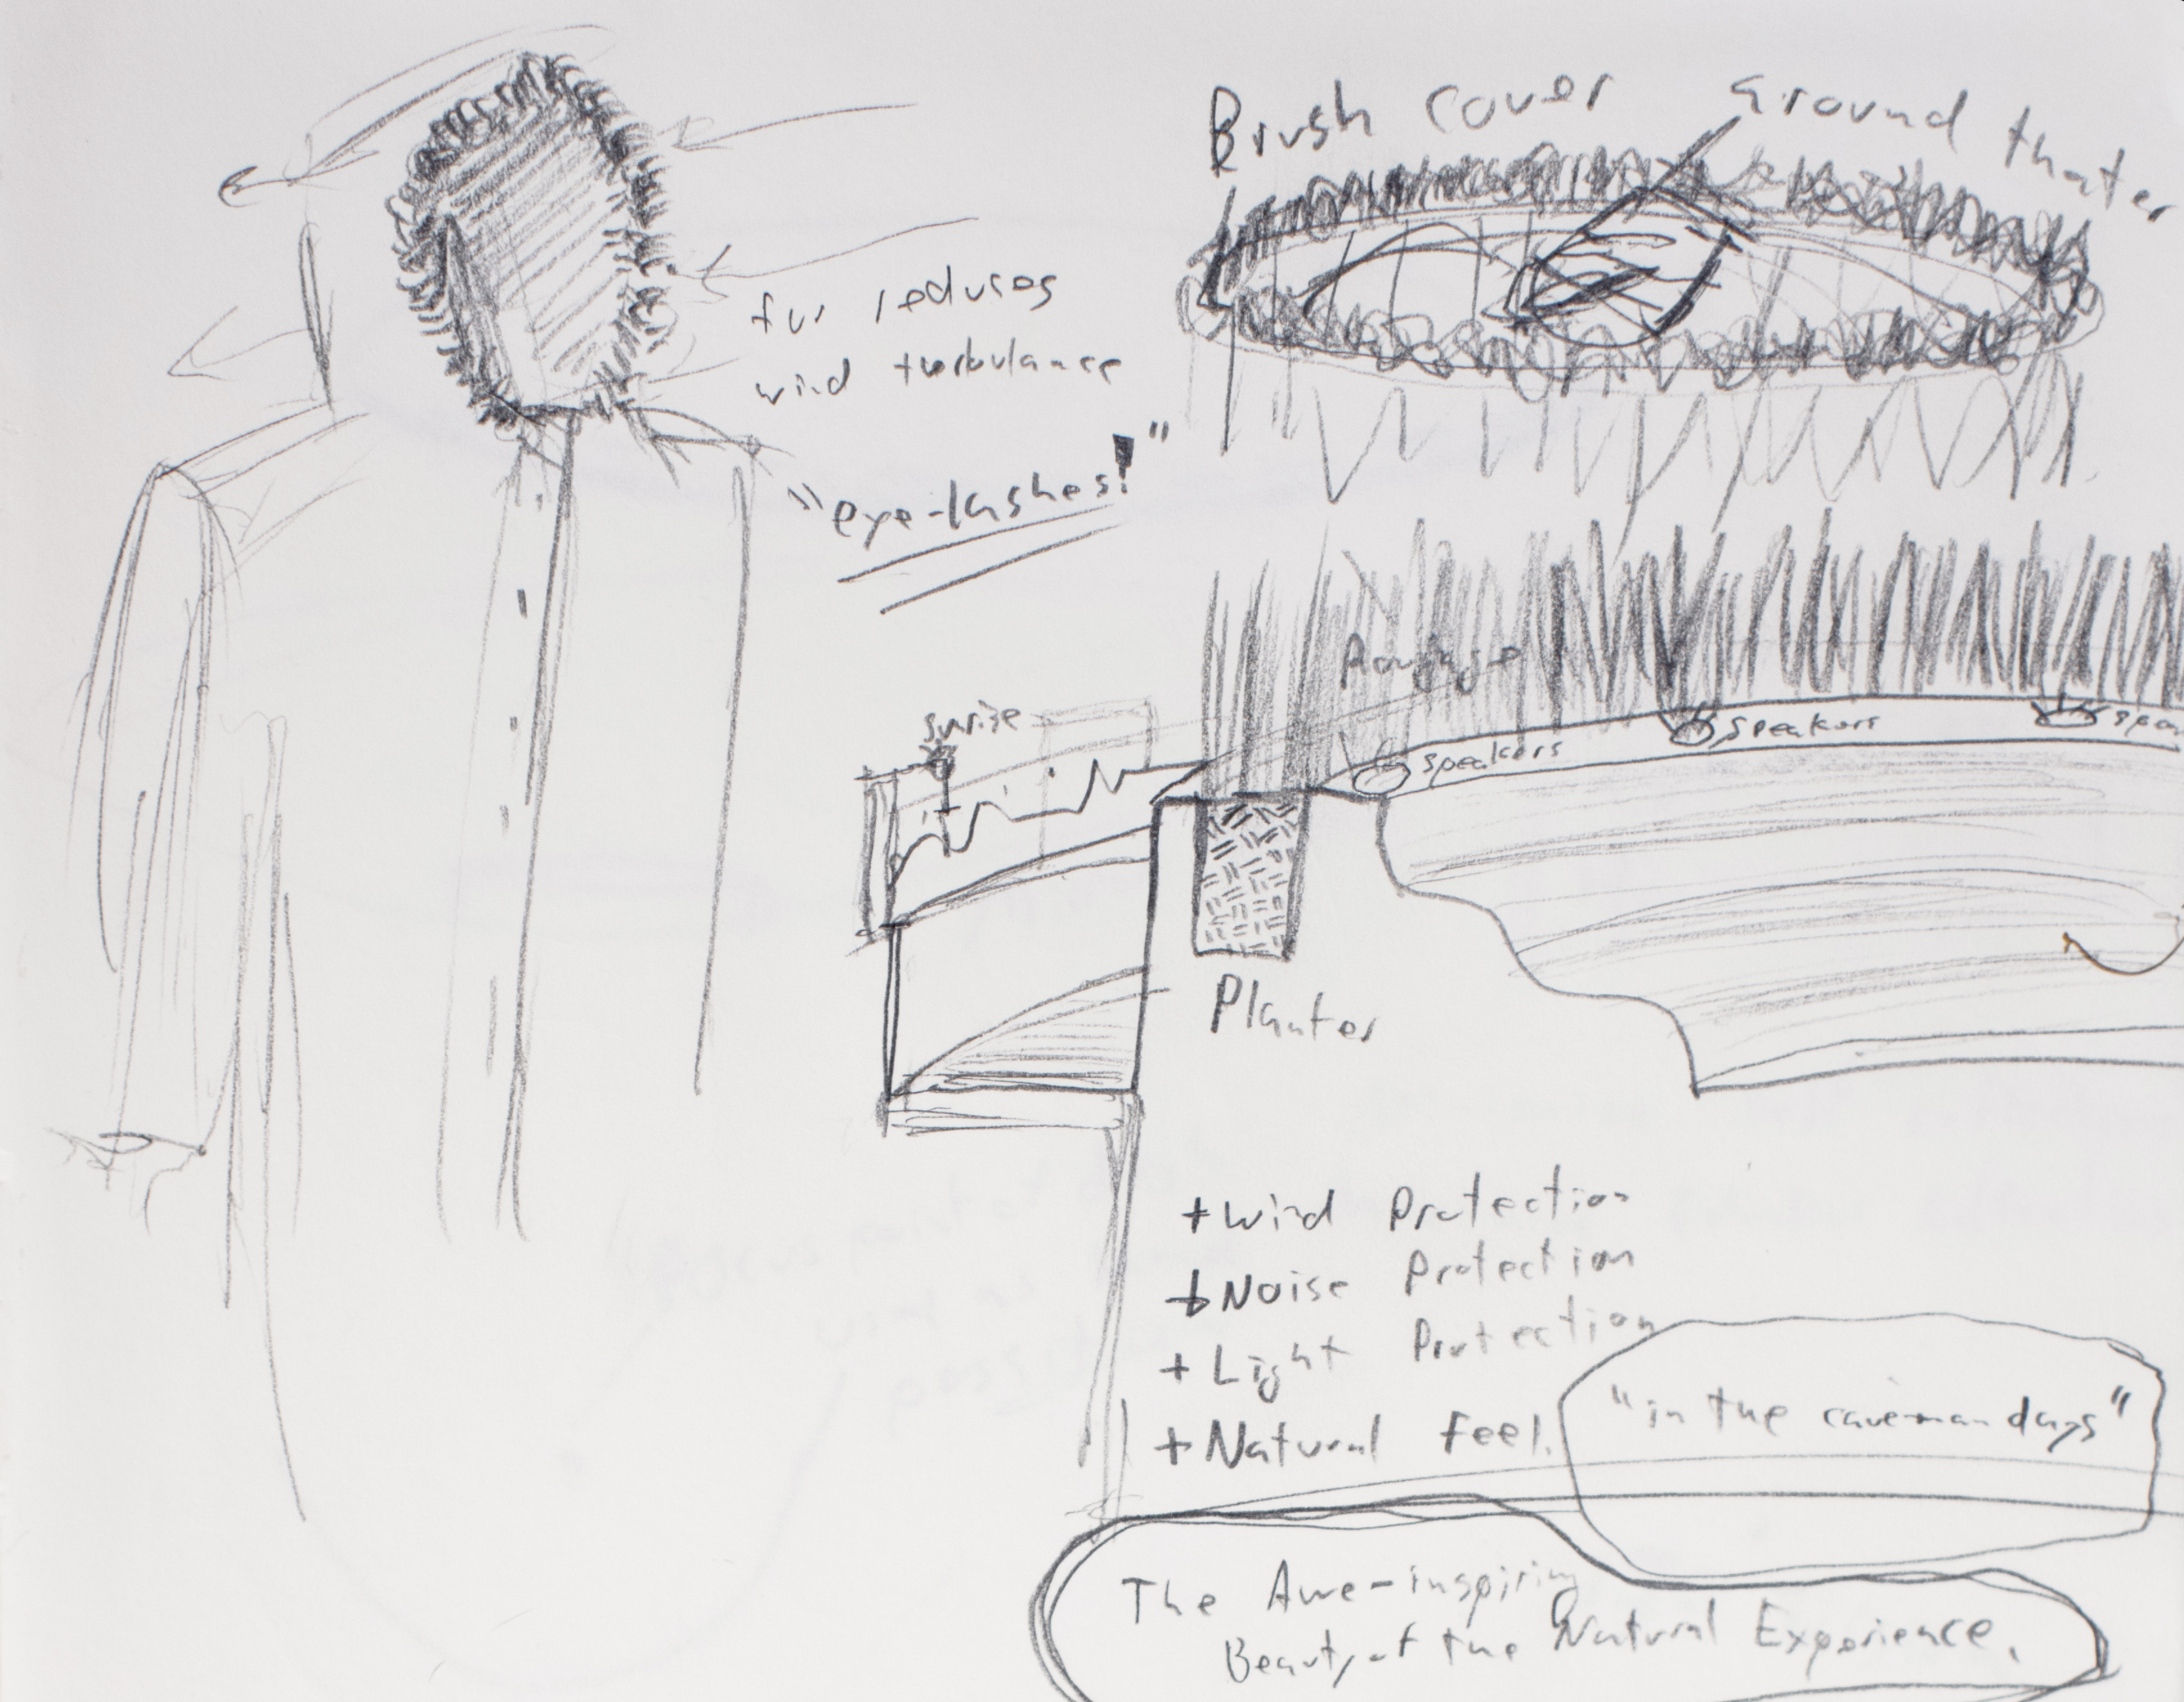 Brush cover around thater
fur reduces
wind turbulance
"eye-lashes!"
sunrise
speakers
speakers
spea
Planter
+ Wind Protection
+ Noise Protection
+ Light Protection
+ Natural Feel.
"in the caveman days"
The Awe-inspiring
Beauty of the Natural Experience.